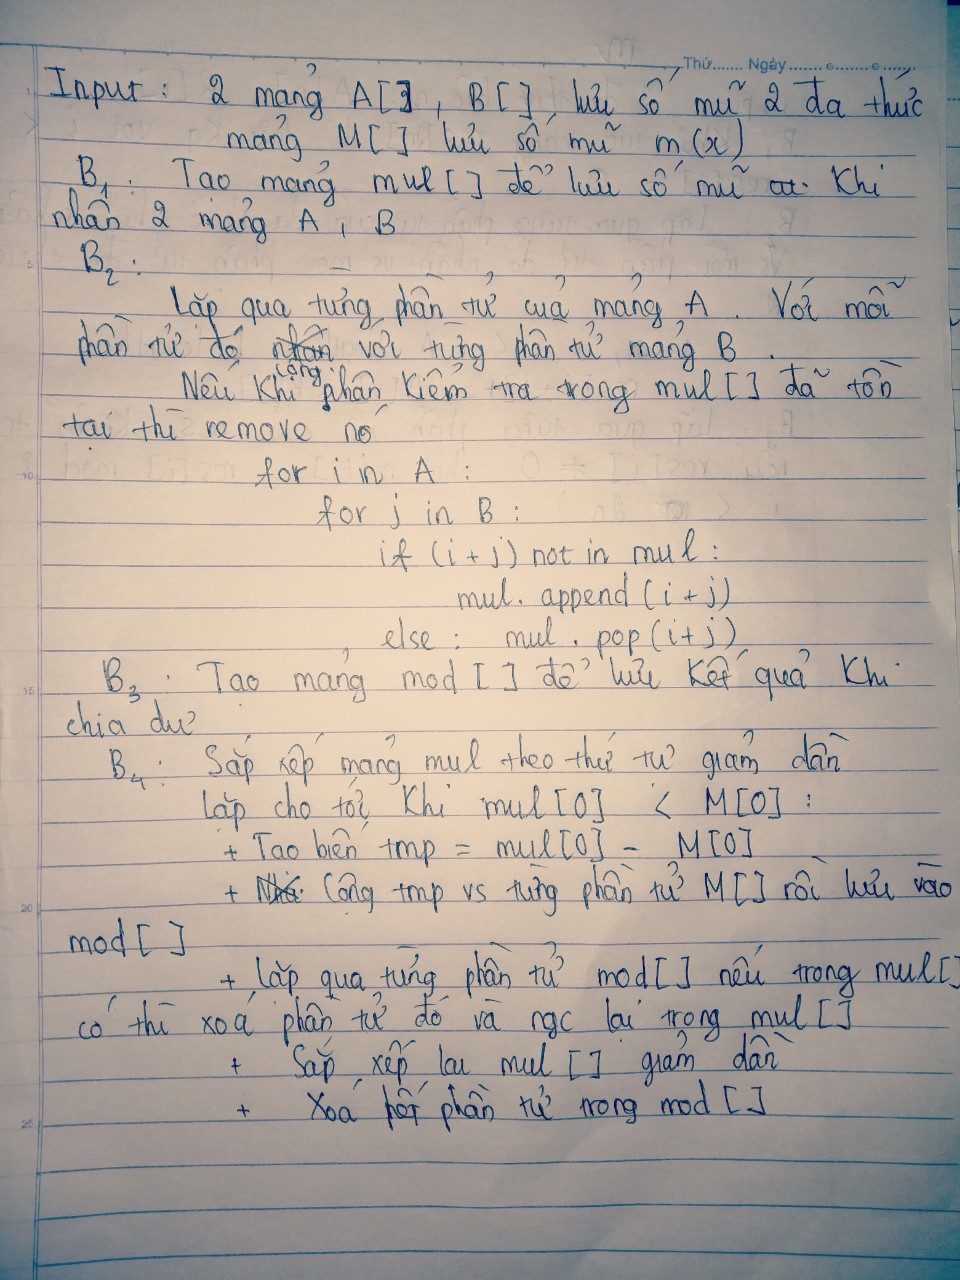 Thứ....... Ngày....... ....... .......
Input : 2 mảng A[], B[] lưu số mũ 2 đa thức
mảng M[] lưu số mũ m(x)
B1 : Tạo mảng mul[] để lưu số mũ khi
nhân 2 mảng A, B
B2 :
Lặp qua từng phần tử của mảng A. Với mỗi
phần tử đó cộng với từng phần tử mảng B.
Nếu khi nhân kiểm tra trong mul[] đã tồn
tại thì remove nó
for i in A :
for j in B :
if (i+j) not in mul :
mul. append (i+j)
else : mul. pop (i+j)
B3 : Tạo mảng mod [] để lưu kết quả khi
chia dư
B4 : Sắp xếp mảng mul theo thứ tự giảm dần
Lặp cho tới khi mul[0] < M[0] :
+ Tạo biến tmp = mul[0] - M[0]
+ Cộng tmp vs từng phần tử M[] rồi lưu vào
mod []
+ Lặp qua từng phần tử mod[] nếu trong mul[]
có thì xoá phần tử đó và ngc lại trong mul[]
+ Sắp xếp lại mul [] giảm dần
+ Xoá hết phần tử trong mod []
5
10
15
20
25